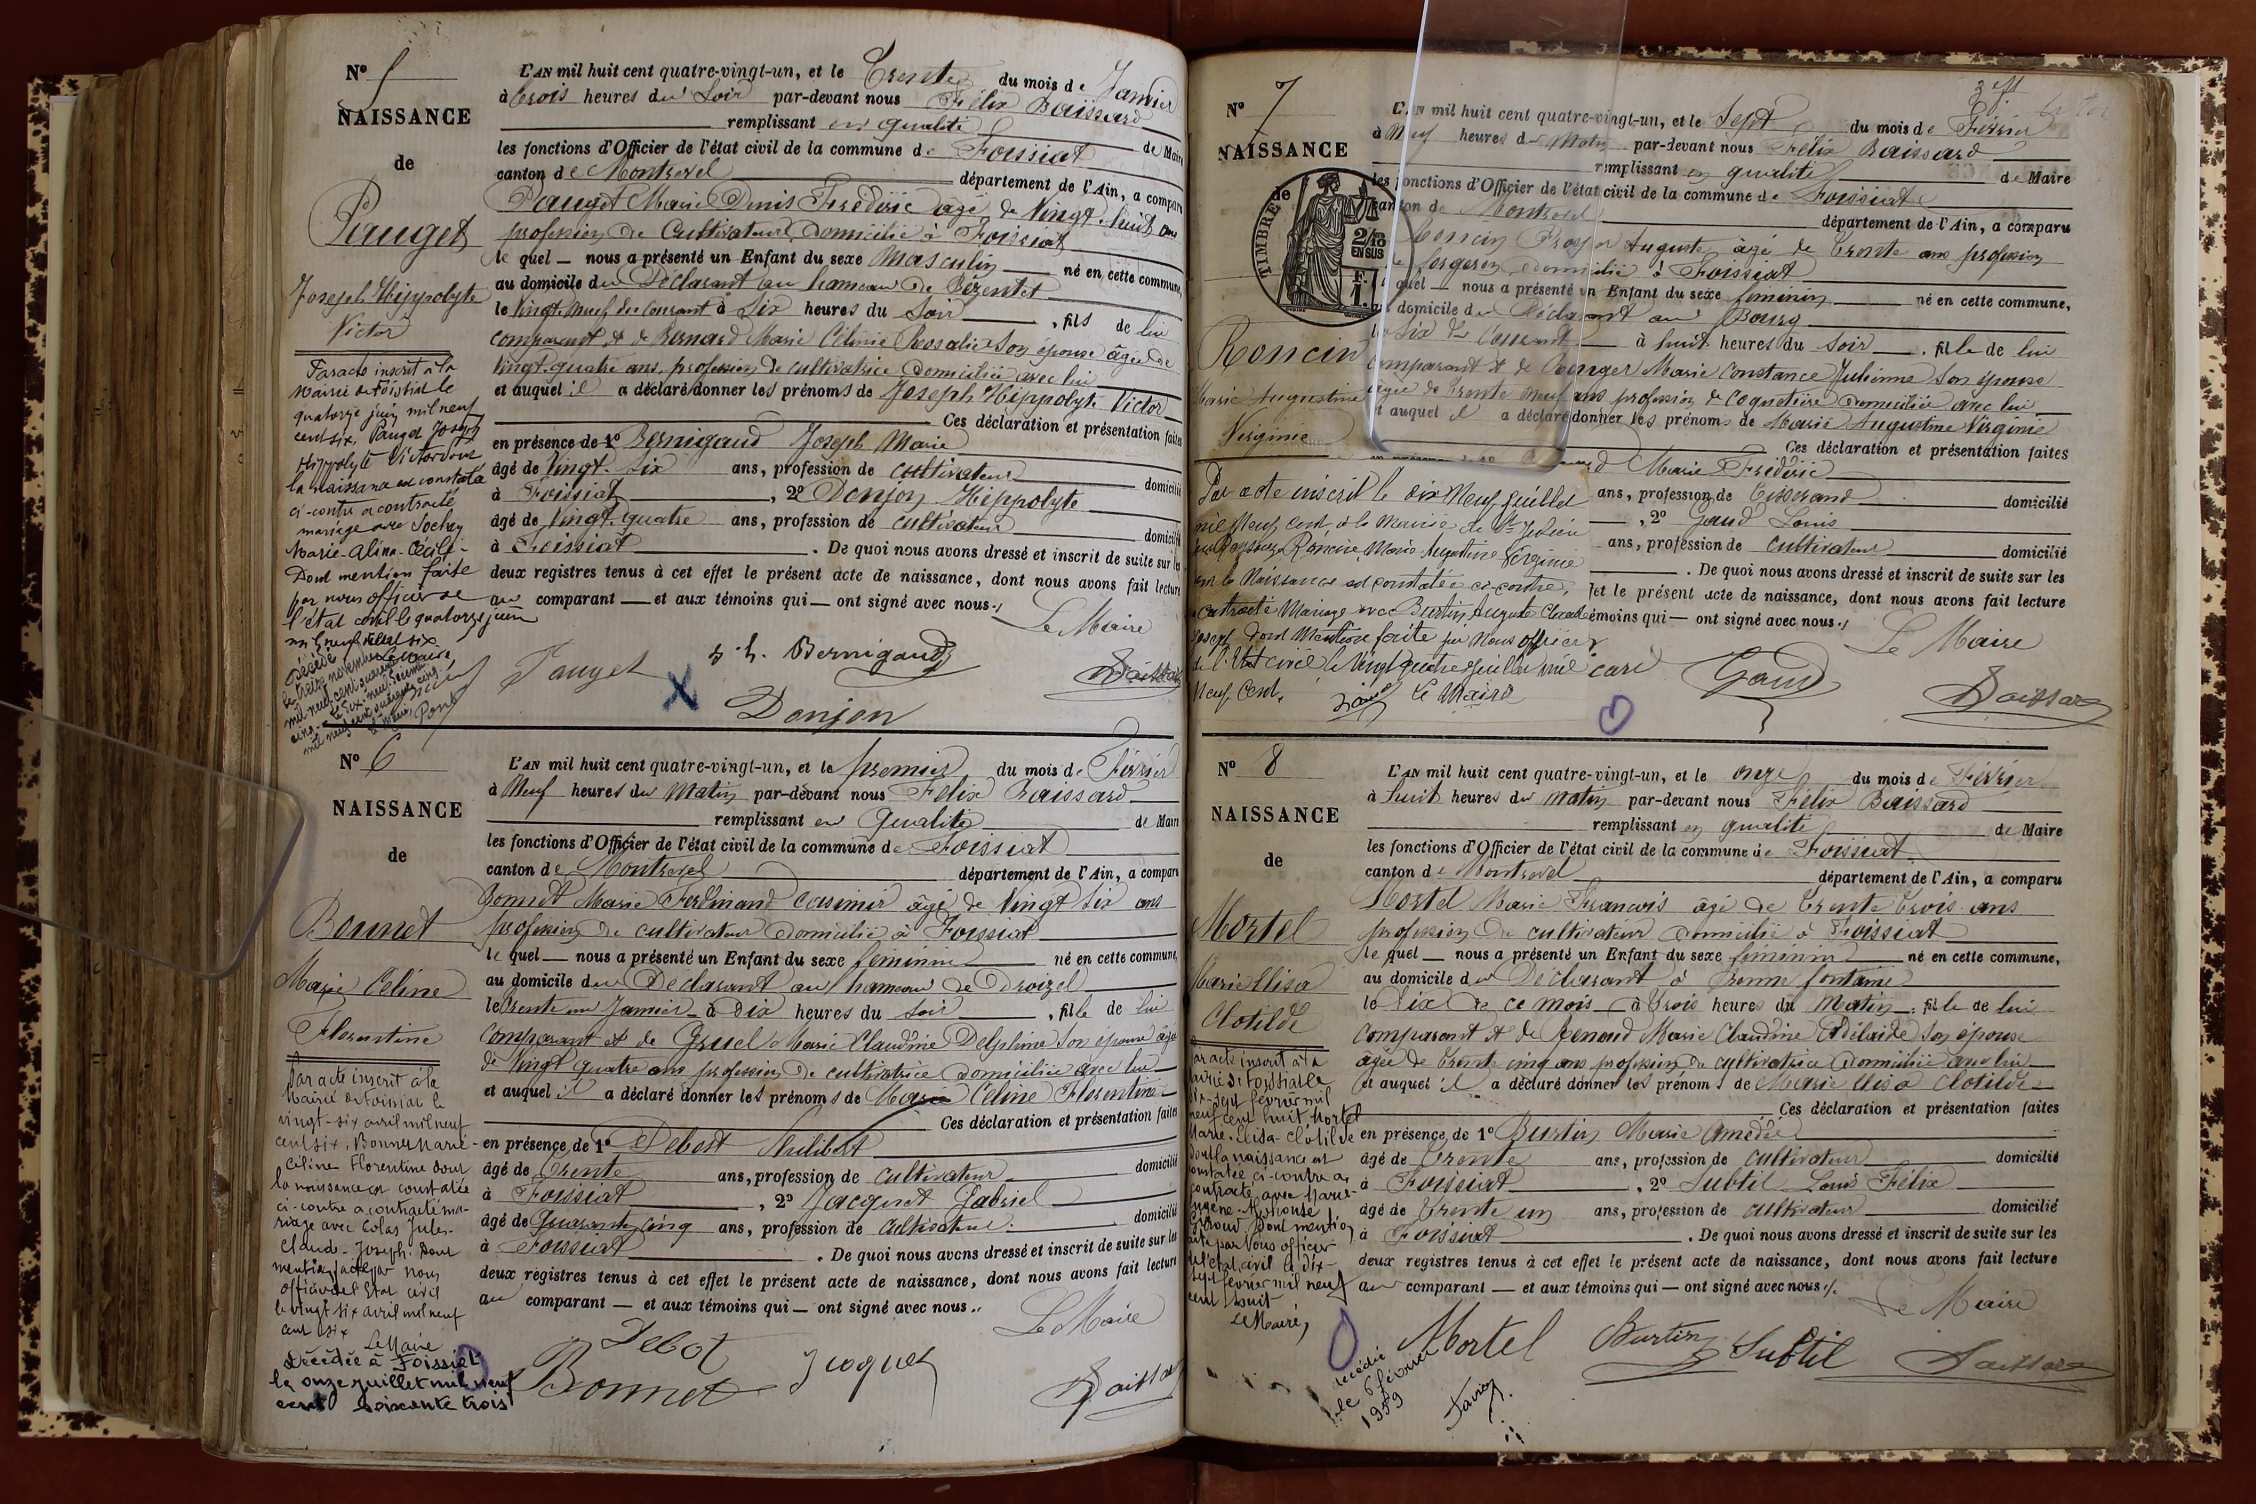 N° 5
NAISSANCE
de
Pauget
Joseph Hippolyte
Victor
Par acte inscrit à la
Mairie de Foissiat le
quatorze juin mil neuf
cent six, Pauget Joseph
Hippolyte Victor dont
la naissance est constatée
ci-contre a contracté
mariage avec Sochay
Marie-Alina-Cécile-
Dont mention faite
par nous officier de
l'état civil le quatorze juin
mil neuf cent six
Le Maire
Décédé
le treize novembre
mil neuf cent
L'AN mil huit cent quatre-vingt-un, et le Trente du mois de Janvier
à trois heures du Soir par-devant nous Félix Baissard
remplissant en qualité de Maire
les fonctions d'Officier de l'état civil de la commune de Foissiat
canton de Montrevel département de l'Ain, a comparu
Pauget Marie Denis Frédéric âgé de Vingt-huit ans
profession de Cultivateur domicilié à Foissiat
le quel — nous a présenté un Enfant du sexe masculin né en cette commune,
au domicile du Déclarant au hameau de
le Vingt-neuf du Courant à Six heures du Soir, fils de lui
comparant et de Bernard Marie Célinie Rosalie Son épouse âgée de
Vingt-quatre ans, profession de cultivatrice domiciliée avec lui
et auquel il a déclaré donner les prénoms de Joseph Hippolyte Victor
Ces déclaration et présentation faites
en présence de 1° Bernigaud Joseph Marie
âgé de Vingt-six ans, profession de cultivateur domicilié
à Foissiat, 2° Donjon Hippolyte
âgé de Vingt-quatre ans, profession de cultivateur domicilié
à Foissiat. De quoi nous avons dressé et inscrit de suite sur les
deux registres tenus à cet effet le présent acte de naissance, dont nous avons fait lecture
au comparant — et aux témoins qui — ont signé avec nous./
Le Maire
Pauget
Bernigaud
Baissard
Donjon
N° 6
NAISSANCE
de
Bonnet
Marie Céline
Florentine
Par acte inscrit à la
Mairie de Foissiat le
vingt-six avril mil neuf
cent six, Bonnet Marie-
Céline Florentine dont
la naissance est constatée
ci-contre a contracté ma-
riage avec Colas Jules-
Claude-Joseph. Dont
mention faite par nous
officier de l'Etat civil
le vingt six avril mil neuf
cent six
Le Maire
Décédée à Foissiat
le onze juillet mil neuf
cent soixante trois
L'AN mil huit cent quatre-vingt-un, et le premier du mois de Février
à Neuf heures du Matin par-devant nous Félix Baissard
remplissant en qualité de Maire
les fonctions d'Officier de l'état civil de la commune de Foissiat
canton de Montrevel département de l'Ain, a comparu
Bonnet Marie Ferdinand Casimir âgé de Vingt six ans
profession de cultivateur domicilié à Foissiat
le quel — nous a présenté un Enfant du sexe féminin né en cette commune,
au domicile du Déclarant au hameau de
le trente un Janvier à Dix heures du Soir, fille de lui
comparant et de Gruel Marie Claudine Delphine Son épouse âgée
de Vingt quatre ans profession de cultivatrice domiciliée avec lui
et auquel il a déclaré donner les prénoms de Marie Céline Florentine
Ces déclaration et présentation faites
en présence de 1° Debost Philibert
âgé de trente ans, profession de cultivateur domicilié
à Foissiat, 2° Jacquet Gabriel
âgé de Quarante cinq ans, profession de cultivateur domicilié
à Foissiat. De quoi nous avons dressé et inscrit de suite sur les
deux registres tenus à cet effet le présent acte de naissance, dont nous avons fait lecture
au comparant — et aux témoins qui — ont signé avec nous./
Le Maire
Debost
Bonnet
Jacquet
Baissard
N° 7
NAISSANCE
de
TIMBRE
2/10
EN SUS
F.
1.
Roncin
Marie Augustine
Virginie
Par acte inscrit le dix Neuf Juillet
mil Neuf Cent, à la Mairie de St Julien
sur Reyssouze, Roncin Marie Augustine Virginie
dont la Naissance est constatée ci-contre,
a contracté Mariage avec Burtin Auguste
Joseph, dont Mention faite par Nous officier
de l'Etat civil le Vingt quatre Juillet mil
Neuf Cent.
Le Maire
L'AN mil huit cent quatre-vingt-un, et le Sept du mois de Février
à Neuf heures du Matin par-devant nous Félix Baissard
remplissant en qualité de Maire
les fonctions d'Officier de l'état civil de la commune de Foissiat
canton de Montrevel département de l'Ain, a comparu
Roncin Prosper Auguste, âgé de Trente ans profession
de domicilié à Foissiat
le quel — nous a présenté un Enfant du sexe féminin né en cette commune,
au domicile du Déclarant au Bourg
le Six du Courant à huit heures du Soir, fille de lui
comparant et de Marie Constance Julienne Son épouse
âgée de trente neuf ans profession de coquetière domiciliée avec lui
et auquel il a déclaré donner les prénoms de Marie Augustine Virginie
Ces déclaration et présentation faites
Marie Frédéric
ans, profession de Tisserand domicilié
, 2° Gaud Louis
ans, profession de cultivateur domicilié
. De quoi nous avons dressé et inscrit de suite sur les
et le présent acte de naissance, dont nous avons fait lecture
témoins qui — ont signé avec nous./
Le Maire
Gaud
Baissard
N° 8
NAISSANCE
de
Mortel
Marie Elisa
Clotilde
Par acte inscrit à la
Mairie de Foissiat le
dix-sept février mil
neuf cent huit, Mortel
Marie-Elisa-Clotilde
dont la naissance est
constatée ci-contre a
contracté avec Marie-
Eugène-Alphonse
Dont mention
faite par nous officier
de l'état civil le dix-
sept février mil neuf
cent huit
Le Maire,
décédé
le 6 février
1959
L'AN mil huit cent quatre-vingt-un, et le onze du mois de Février
à huit heures du matin par-devant nous Félix Baissard
remplissant en qualité de Maire
les fonctions d'Officier de l'état civil de la commune de Foissiat
canton de Montrevel département de l'Ain, a comparu
Mortel Marie François âgé de trente trois ans
profession de cultivateur domicilié à Foissiat
le quel — nous a présenté un Enfant du sexe féminin né en cette commune,
au domicile du Déclarant à Bonne fontaine
le dix de ce mois à trois heures du matin, fille de lui
comparant et de Renoud Marie Claudine Adélaïde Son épouse
âgée de trente cinq ans profession de cultivatrice domiciliée avec lui
et auquel il a déclaré donner les prénoms de Marie Elisa Clotilde
Ces déclaration et présentation faites
en présence de 1° Burtin Marie Amédée
âgé de trente ans, profession de cultivateur domicilié
à Foissiat, 2° Subtil Louis Félix
âgé de trente un ans, profession de cultivateur domicilié
à Foissiat. De quoi nous avons dressé et inscrit de suite sur les
deux registres tenus à cet effet le présent acte de naissance, dont nous avons fait lecture
au comparant — et aux témoins qui — ont signé avec nous./.
Le Maire
Mortel
Burtin
Subtil
Baissard